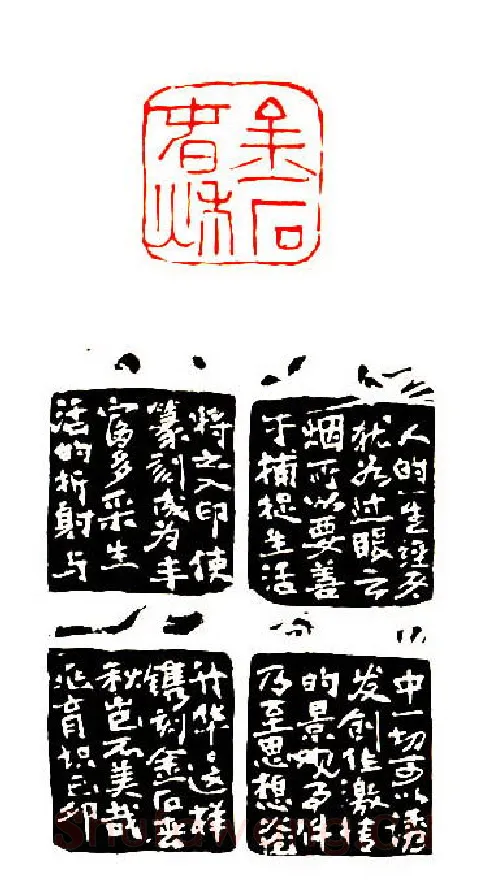 金石
春秋
人的一生经历
犹如过眼云
烟所以要善
于捕捉生活
中一切可以诱
发创作激情
的景观事件
乃至思想
将之入印使
篆刻成为丰
富多采生
活的折射与
升华这样
镌刻金石春
秋岂不美哉